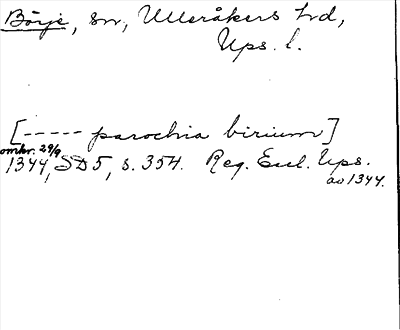 Börje, sn, Ulleråkers hd,
Ups. l.
[----- parochia birium]
omkr. 29/9
1344, SD 5, s. 354. Reg. Eccl. Ups.
av 1344.